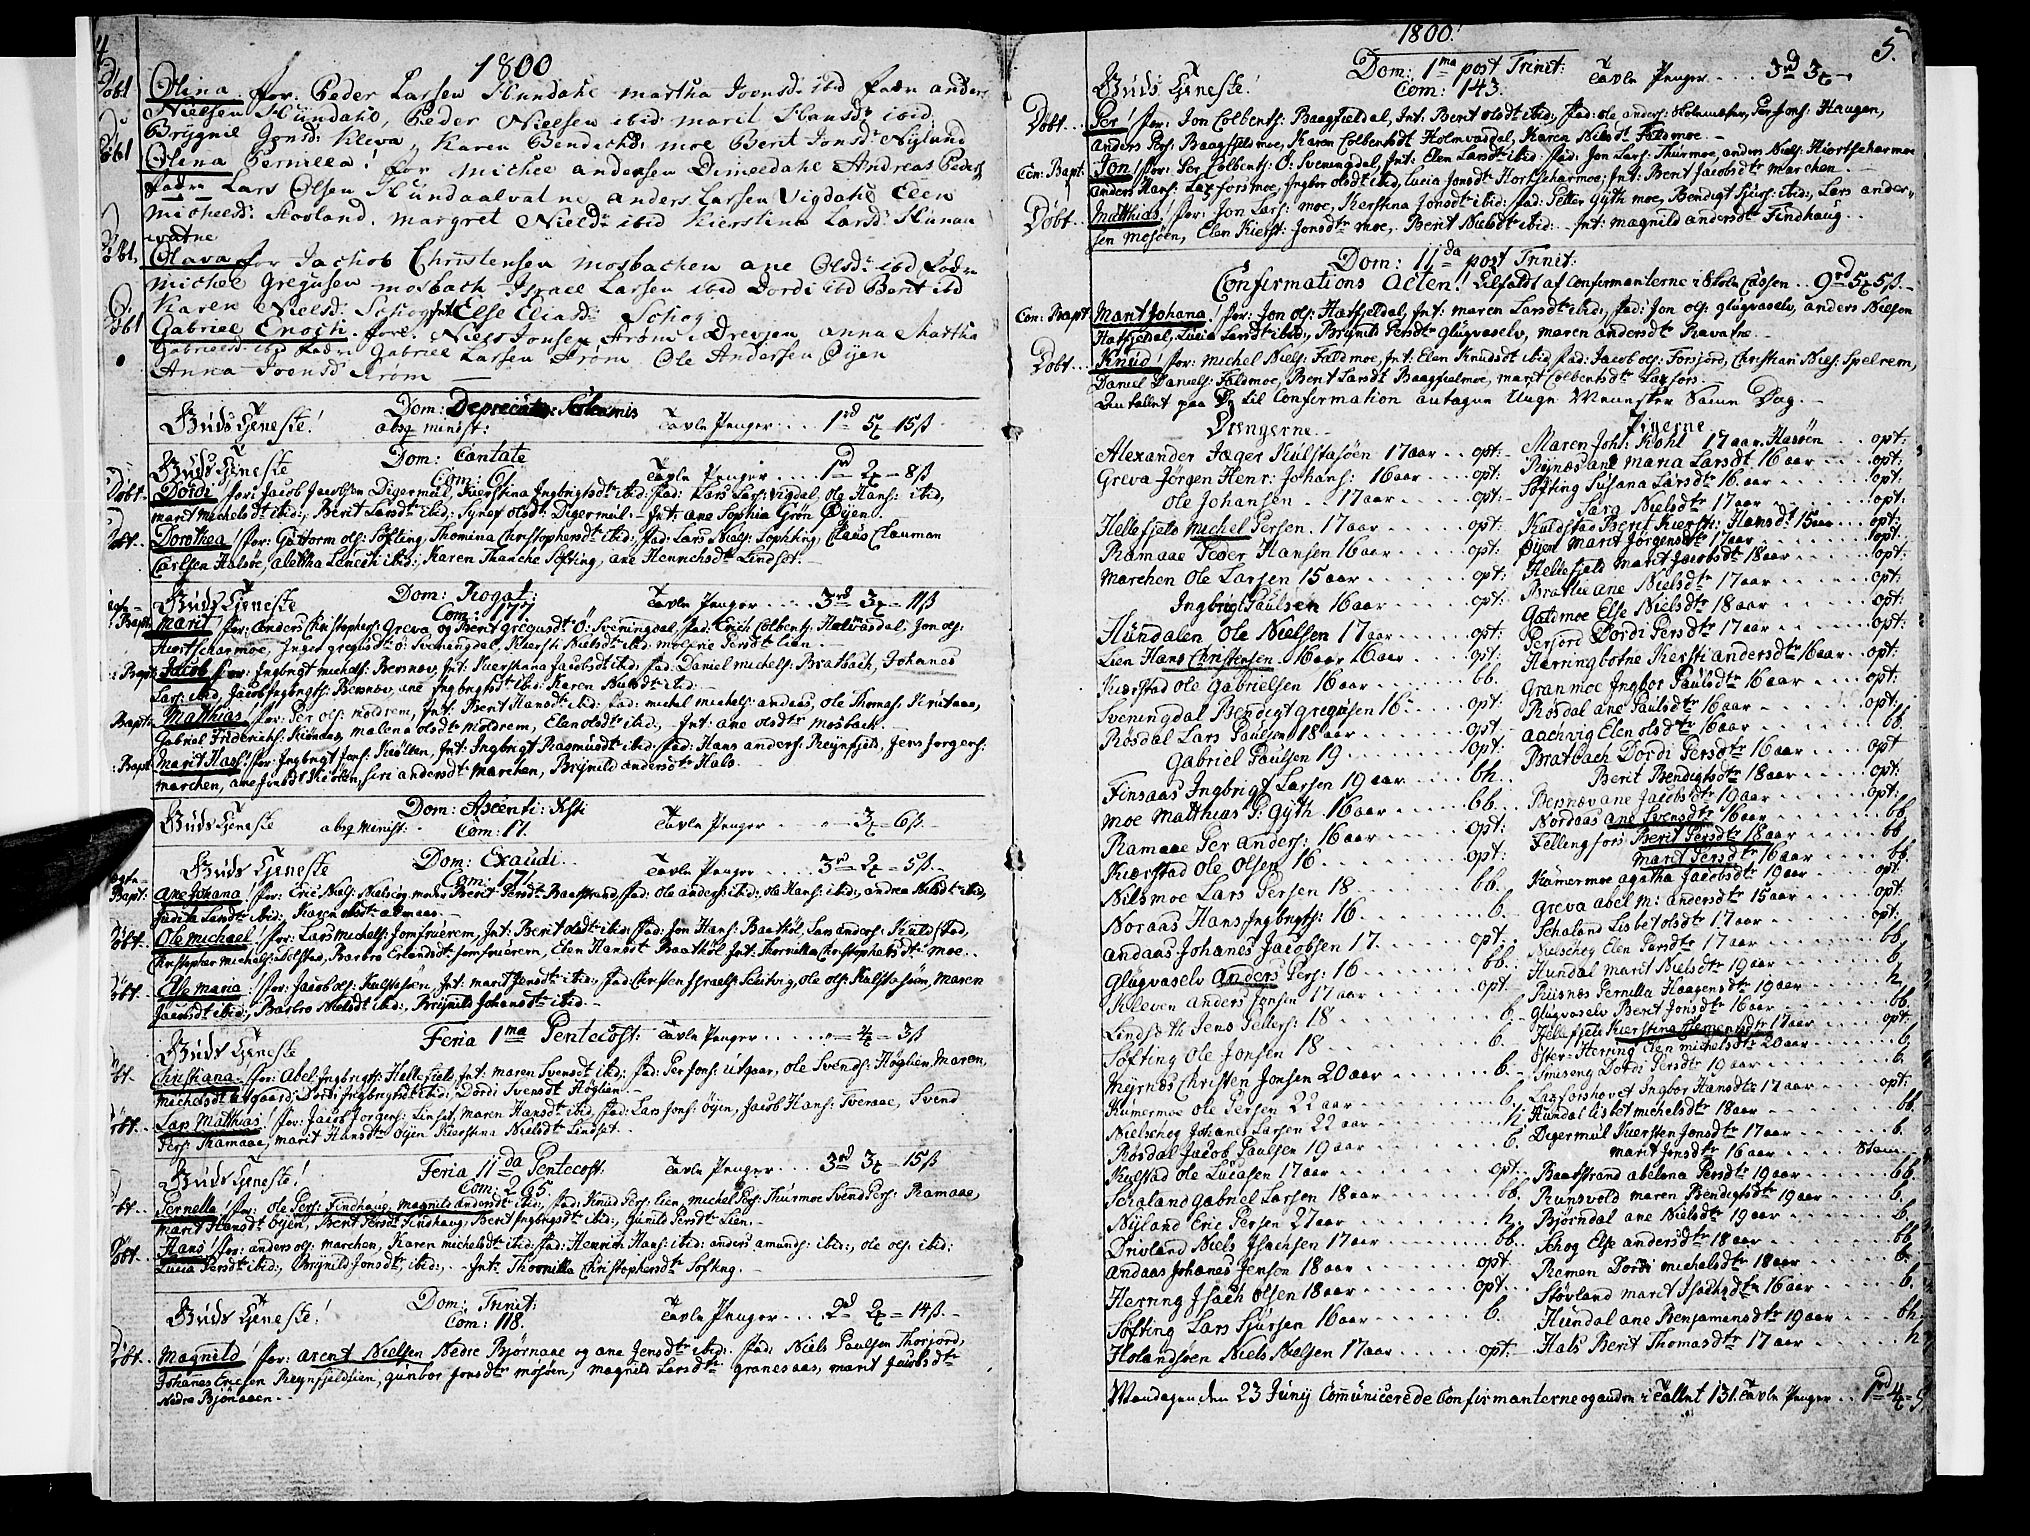 4
1800
Døbt
Olina for: Peder Larsen Hundahl Martha Joensd: ibd fadr anders
Nielsen Hundahl, Peder Nielsen ibid marit Hansd: ibid
Brÿgnil Jonsd: Kleva, Karen Bendichd: moe Berit Jonsd: Nÿlund
Døbt
Olina Pernilla! for Michel andersen Dimeldahl Andreas Peders
fadr Lars Olsen Hundaalvatne, anders Larsen Vigdahl Elen
michelsd: Hovland. margret Nield: ibid Kierstina Larsd: Hunan
vatne
Døbt,
Olava for Jachob Christensen mosbachen ane Olsd: ibd fadr
michel gregusen mosbach Israel Larsen ibid Dordi ibd Berit ibd
Karen Nielsd: Schog Int Else Eliasd: Schog
Døbt
Gabriel Enoch. for: Niels Jonsen Strøm i Drevjen anna Martha
Gabrielsd: ibd fadr: Gabriel Larsen Strøm Ole Andersen Øÿen
Anna Joensd Strøm
Guds Tjeneste! Dom: Deprecat: Solemnis Tavle Penger .... 1rd 5 15ß
absq minist:
Dom: Cantate
Guds Tjeneste Com: 61. Tavle Penger .... 1rd 2 = 8ß
Døbt
Dordi! for: Jacob Jacobsen Digermul, Kierstina Ingbrigtsdt: ibid: fad: Lars Lars: Vigdal, ole Hans: ibid,
marit michelsdt ibid:, Berit Larsdt: ibid: Synev olsdt: Digermul. Int: ane Sophia Grøn Øÿen.
Døbt.
Dorothea! for: Guttorm ols: Søfting, Thomina Christophersdt: ibid: fad: Lars Niels: Søphting, Claus Clauman
Carlsen Halsøe, alettha ibid:, Karen Thanche Søfting, ane Henrichsdt: Lindset.
Guds Tjeneste Dom: Rogat: Tavle Penger .... 3rd 3 = 11ß
Com: 177.
Bapt
Marit! for: anders Christophers: Greva og Berit gregusdt Ö: Sveningdal. fad: Erich Colbents: Holmvasdal, Jon ols:
Hiortscharmoe, Inger gregusdt: ö: Sveningdal, Kiersti Nielsdt ibid: molene Persdt lien.
: Bapt:
Jacob! for: Ingbrigt michels: Bersnev, Int: Kierstiana Jacobsdt ibid, fad: Daniel michels: Bratbach, Johanes
Lars: ibid, Jacob Ingbrigts: Bersnev, ane Ingbrigtsdt: ibid: Karen Nielsdt: ibid:
Bapt:
Matthias! for: Per ols: moldrem, Int: Berit Hansdt ibid: fad: michel michels: andaas, ole Thomas:
Gabriel Friderichs: malena olsdt moldrem, Elen olsdt: ibid:, Int: ane olsdtr mosbach.
: Bapt
Marit Has! for: Ingbrigt Jons: Kiølen, Int: Ingbrigt Rasmusdt ibid: fad: Hans anders: Reinfjeld, Jens Jørgens:
marchen, ane Jonsdt Kiølen, Siri andersdt: marchen, Brijnild andersdtr Hals.
Dom: Ascenti: Xsti
Guds Tjeneste absq Minist: Com: 17. Tavle Penger .... 3 = 6ß
Guds Tjeneste Dom: Exaudi. Tavle Penger .... 3r 2 = 5ß
Com: 171.
Bapt:
Ane Johana! for: Eric Niels: Nielsc og moder Berit Persdt Baastrand, fad: ole anders: ibid:, ole Hans: ibid:, andrea Nielsdt ibid,
Judita Larsdt ibid:, Karen olsdt: almaas.
Døbt.
Ole Michael! for: Lars michels: Jomfruerem, Int: Berit olsdt ibid:, fad: Jon Hans: Baathöl, Lars anders: Kuldstad,
Christopher michels: Selstad, Barbro Erlandsdt: Jomfruerem, Elen Hansdt Baathöl Int: Thornilla Christophersdt: moe.
Døbt.
Else Maria! for: Jacob ols: Kulstasöen, Int: marit Jensdt: ibid:, fad: Christen Israels: Schitvig, ole ols: Kulstasöen, Maren
Jacobsdt ibid:, Barbro Nielsdt ibid:, Breijnild Johansdt: ibid.
Guds Tjeneste Feria 1ma Pentecost: Tavle Penger .... 4 = 3ß
Christiana. for: Abel Ingbrigts: Hellefield, Int: maren Svensdt: ibid:, fad: Per Jons: Utgaar, ole Svends: Høglien, Maren
michelsdt Utgaard, Dordi Ingbrigtsdt ibid:, Dordi Svensdt Høglien.
Døbt.
Lars Matthias! for: Jacob Jørgens: Linset, maren Hansdt: ibid, fad: Lars Jons: Øÿen, Jacob Hans: Tveraae, Svend
Pers: Ramaae, marit Hansdtr Øÿen Kierstina Nielsdt Lindset.
Guds Tjeneste! Feria 11da Pentecost: Tavle Penger .... 3rd 3 = 15ß
Com: 265.
Pernella! for: ole Pers: Findhaug Magnild andersdt ibid:, fad: Knud Pers: lien, Michel Pers: Thurmoe Svend Pers: Ramaae,
marit Hansdt: Øÿen, Berit Persdt Findhaug, Berit Ingbrigsdt: ibid:, Gunild Persdt: Lien.
Døbt.
Hans! for: anders ols: marchen, Karen michelsdt: ibid: fad: Henrich Hans: ibid: anders amunds: ibid:, ole ols: ibid:
Lucia Persdt: ibid:, Brÿnild Jonsdt:, ibid:, - Int: Thornilla Christophersdt: Søfting.
Guds Tjeneste! Dom: Trinit: Tavle Penger ... 2d 2 = 14ß
Com: 118.
Døbt.
Magnild! for: Arent Nielsen Nedre Bjørnaae og ane Jensdt: ibid: fad: Niels Paulsen Thorjord,
Johannes Ericsen Reynfjeldlien, gunbor Jonsdtr mosøen, magnild Larsdtr Granesaas, marit Jacobsdtr
Nedre Bjönaaen.
1800! 5.
Dom: 1ma post Trinit:
Guds Tjeneste! Com: 143. Tavle Penger .... 3rd 3
Døbt ...
Per! for: Jon Colbents: Baagfieldal, Int: Berit olsdt ibid:, fad: ole anders: Holmvasdal, Per Jons: Haugen,
anders Pers: Baagfieldmoe, Karen Colbentsdt Holmvasdal, Karen Nielsdt Faldmoe.
Con: Bapt:
Jon! for: Per Colbents: Ö: Sveningdal, Int: Elen Larsdt: ibid: fad: Jon Lars: Thurmoe, anders Niels: Hiortscharmoe
anders Hans: Laxforsmoe, Ingbor olsdt ibid, Lucia Jonsdt Hortscharmoe; Int: Berit Jacobsdt: marchen.
Døbt.
Matthias! for: Jon Lars: moe, Kerstina Jonsdt ibid: fad: Petter Gÿth moe, Bendigt Sjurs: ibid:, Lars ander-
sen mosöen, Elen Kierst: Jonsdtr moe, Berit Nielsdt ibid: Int: magnild andersdtr Findhaug.
Dom: 11da post Trinit:
Confirmations Acten! Tilfaldt af Confirmanterne i Skole Cassen .. 9rd 5 5ß
Con: Bapt
Marit Johana! for: Jon ols: Hatfjeldal, Int: maren Larsdt ibid:, fad: Jon ols: glugvaselv, anders Nielsen
Hatfjeldal, Lucia Larsdt ibid:, Brÿnild Persdt Glugvaselv, maren andersdt: Ravatne.
Døbt ...
Knud! for: michel Niels: Faldmoe, Int: Elen Knudsdt ibid, fad: Jacob ols: Forsjord, Christian Niels: Spelrem,
Daniel Daniels: Faldmoe, Berit Larsdt Baagfielmoe, marit Colbentsdtr Laxfors.
Antallet paa De til Confirmation antagne Unge Mennesker Samme Dag.
Drengerne.
Alexander Jæger Kulstasöen 17 aar .. opt:
Greva Jörgen Henr: Johans: 16 aar .... opt:
ole Johansen ... 17 aar ...... opt:
Hellefjeld Michel Persen. 17 aar ...... opt:
Ramaae Peder Hansen 16 aar ...... opt:
Marchen ole Larsen 15 aar ...... opt:
Ingbrigt Paulsen 16 aar ...... opt:
Hundalen ole Nielsen 17 aar ...... opt:
Lien Hans Christensen 16 aar 16 aar .... opt:
Kierstad ole Gabrielsen 16 aar ...... bb.
Sveningdal Bendigt gregusen 16 ... opt:
Røsdal Lars Paulsen 18 aar ...... opt
Gabriel Paulsen 19 ...... opt:
Finsaas Ingbrigt Larsen 19 aar ...... bh.
Moe Matthias P: Gÿth 16 aar ...... bb.
Ramaae Per anders: 16 aar ...... opt:
Kierstad ole olsen 16 ...... opt:
Nilsmoe Lars Persen 18 ...... bb.
Noraas Hans Ingbrigts: 16 ...... b.
andaas Johanes Jacobsen 17 ...... opt
Glugvaselv Anders Pers: 16 ...... bb.
Kleven anders Jonsen 17 aar ...... opt
Lindseth Jens Petters: 18 ...... b
Søfting ole Jonsen 18 ...... b.
Mÿrnæs Christen Jonsen 20 aar ...... b.
Kumermoe ole Persen 22 aar ...... b.
Nielschog Johanes Larsen 22 aar ...... h
Røsdal Jacob Paulsen 19 aar ...... b
Kulstad ole Lucasen 17 aar ...... opt.
Schaland Gabriel Larsen 18 aar ...... bb.
Nÿland Eric Persen 27 aar ...... h.
Drivland Niels Isachsen 17 aar ...... bb.
Andaas Johanes Jensen 18 aar ...... opt
Herring Isach olsen 18 aar ...... opt:
Søfting Lars Sjursen 16 aar ...... b.
Holandsöen Niels Nielsen 17 aar ...... opt:
Pigerne
Maren Joh: Kohl 17 aar. Hasøen ... opt:
Reijnæs ane maria Larsdt 16 aar ... opt:
Søfting Susana Larsdt: 16 aar ...... opt:
Sara Nielsdtr 17 aar ...... opt:
Kuldstad Berit Kiersti: Hansdt 15 aar .... opt:
Øÿen Marit Jørgensdtr 17 aar ...... opt:
Hellefjeld Marit Jacobsdt: 18 aar ...... opt:
Bratlie ane Nielsdtr 17 aar ...... opt:
Galtmoe Else Nielsdtr 18 aar ...... opt:
Forsjord Dordi Persdtr 17 aar ...... opt:
Herringbotne Kiersti andersdtr 16 aar .. opt:
Granmoe Ingbor Paulsdtr 16 aar ...... opt:
Røsdal ane Paulsdtr 16 aar ...... opt:
aachvig Elen olsdtr 16 aar ...... bb.
Bratbach Dordi Persdtr 16 aar ...... opt
Berit Bendigtsdtr 18 aar ...... opt:
Bersnev ane Jacobsdtr 19 aar ...... opt:
Nordaas ane Svensdtr 16 aar ...... bb
Fellingfors Berit Persdtr 18 aar ...... bb
Marit Persdtr 16 aar ...... bb.
Kumermoe agatha Jacobsdtr 19 aar ... opt:
Greva abel M: andersdtr 15 aar ...... opt:
Schaland Lisbet olsdtr 17 aar ...... opt:
Nielschog Elen Larsdtr 17 aar ...... bb.
Hundal marit Nielsdtr 19 aar ...... b.
Riisnæs Pernilla Haagensdtr 19 aar ...... h.
Glugvaselv Berit Jonsdtr 16 aar ...... bb.
Hellefjeld Kierstina Clemensdtr 17 aar ... opt:
Øster-Herring Elen michelsdtr 20 aar ... b.
Smiseng Dordi Persdtr 19 aar ...... b.
Laxforshovet Ingbor Hansdtr 17 aar ...... opt:
Hundal Lisbet michelsdtr 18 aar ...... bb.
Digermul Kiersten Jonsdtr 17 aar ...... b.
Marit Jonsdtr 16 aar ...... Stam
Baastrand abelena Persdtr 19 aar ...... bb.
Runsvold maren Bendigtsdtr 19 aar ...... b.
Bjørndal ane Nielsdtr 19 aar ...... b.
Schog Else andersdtr 18 aar ...... bb.
Remen Dordi michelsdtr 18 aar ...... b.
Støvland marit Isachsdtr 16 aar ...... b.
Hundal ane Benjamensdtr 19 aar ...... bh.
Hals Berit Thomasdtr 17 aar ...... h.
Mandagen den 23 Junij Comunicerede Confirmanterne og andre i Tallet 131. Tavle Penger .. 1rd 4 = 5